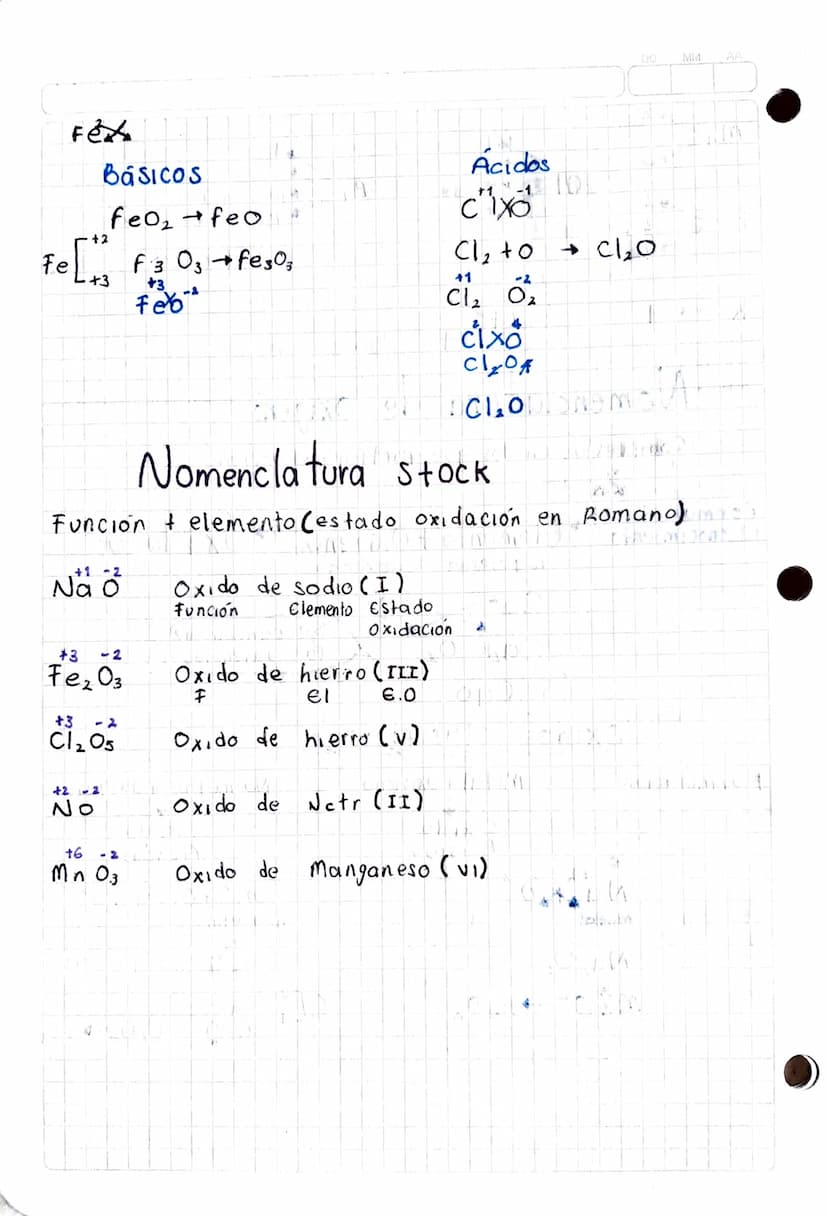 DD MM AA
Básicos
FeO₂ → feO
Fe +2 +3
F 3 O₃ → fe₃O₃
+3 -2
FeO
Ácidos
+1 -1
Cl X O
Cl₂ + O → Cl₂O
+1 -2
Cl₂ O₂
2 4
Cl X O
Cl₂O
Nomenclatura stock
Función + elemento (estado oxidación en Romano)
+1 -2
Na O Oxido de sodio (I)
función Elemento Estado
oxidación
+3 -2
Fe₂O₃ Oxido de hierro (III)
F el E.O
+3 -2
Cl₂O₅ Oxido de hierro (V)
+2 -2
NO Oxido de Nctr (II)
+6 -2
Mn O₃ Oxido de Manganeso (VI)